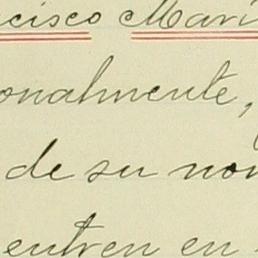 cisco Mari
onalmente,
de su nom
entren en